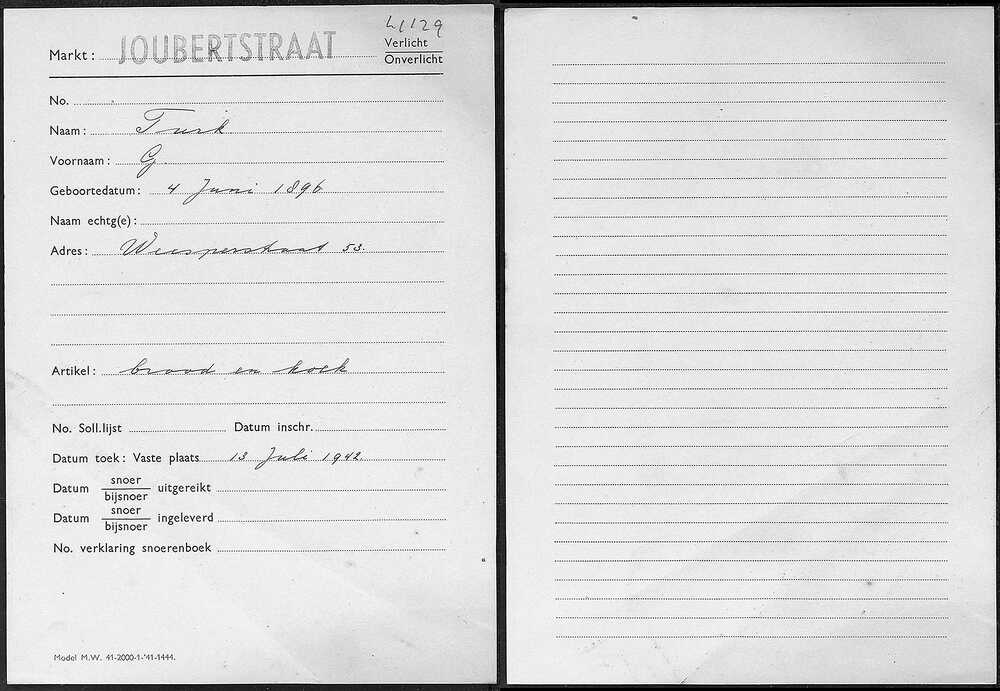 4/129
Markt: JOUBERTSTRAAT
Verlicht
Onverlicht
No.
Naam: Turk
Voornaam: G.
Geboortedatum: 4 Juni 1896
Naam echtg(e):
Adres: Weesperstraat 53.
Artikel: brood en koek
No. Soll.lijst Datum inschr.
Datum toek: Vaste plaats 13 Juli 1942.
Datum snoer/bijsnoer uitgereikt
Datum snoer/bijsnoer ingeleverd
No. verklaring snoerenboek
Model M.W. 41-2000-1-'41-1444.